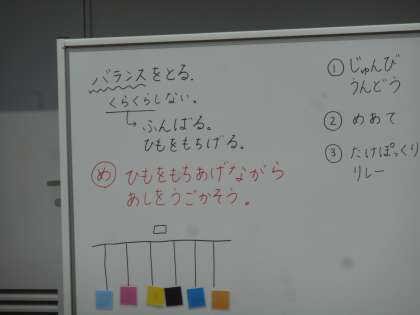 バランスをとる.
くらくらしない.
ふんばる。
ひもをもちげる。
め ひもをもちあげながら
あしをうごかそう。
① じゅんび
うんどう
② めあて
③ たけぽっくり
リレー